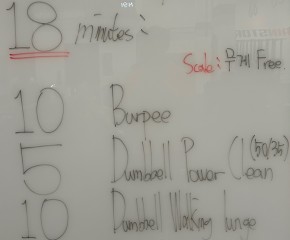 18 minutes:
Scale: 무게 Free
10 Burpee
5 Dumbbell Power Clean (50/35)
10 Dumbbell Walking Lunge